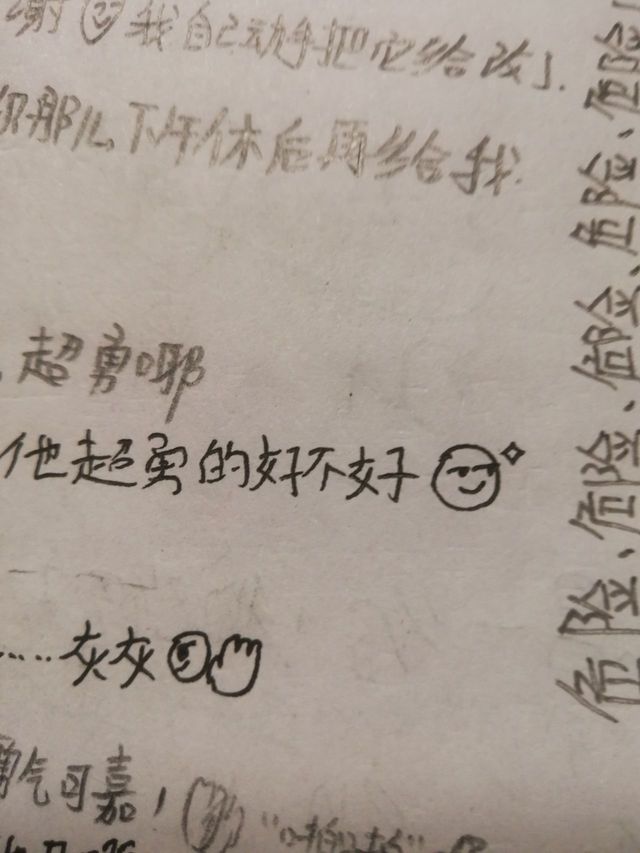 谢 我自己动手把它给改了.
你那儿,下午休后再给我.
超勇哪
他超勇的好不好
……灰灰
勇气可嘉,
危险、危险、危险、危险、危险